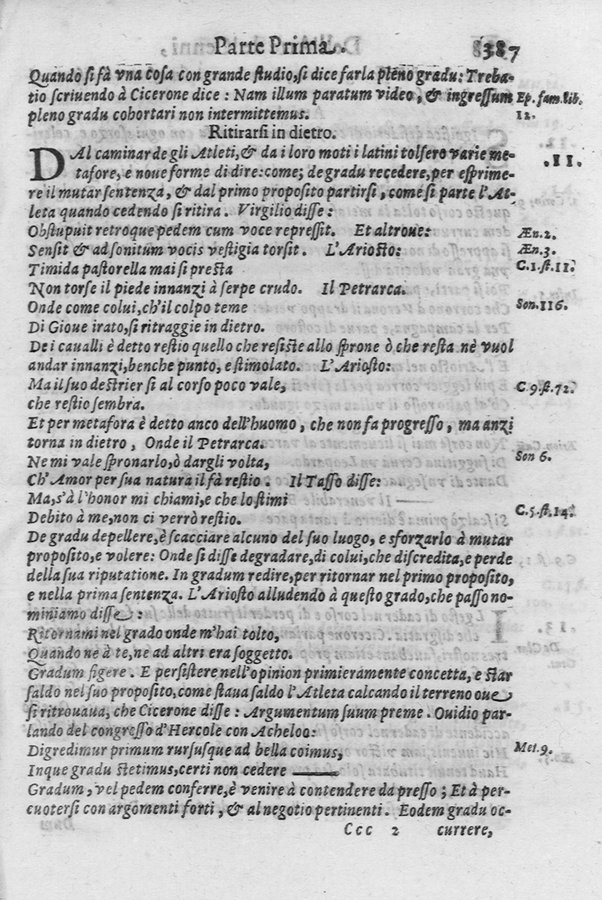 Parte Prima. 387
Quando si fà vna cosa con grande studio, si dice farla pleno gradu: Treba-
tio scriuendo à Cicerone dice : Nam illum paratum video, & ingressum Ep. fam. lib.
pleno gradu cohortari non intermittemus. 12.
Ritirarsi in dietro.
DAl caminar de gli Atleti, & da i loro moti i latini tolsero varie me- .11.
tafore, e noue forme di dire: come; de gradu recedere, per esprime-
re il mutar sentenza, & dal primo proposito partirsi, come si parte l'At-
leta quando cedendo si ritira. Virgilio disse :
Obstupuit retroque pedem cum voce repressit. Et altroue: Æn. 2.
Sensit & ad sonitum vocis vestigia torsit. L'Ariosto: Æn. 3.
Timida pastorella mai si presta C. 1. st. 11.
Non torse il piede innanzi à serpe crudo. Il Petrarca.
Onde come colui, ch'il colpo teme Son. 116.
Di Gioue irato, si ritraggie in dietro.
De i caualli è detto restio quello che resiste allo sprone ò che resta nè vuol
andar innanzi, benche punto, e stimolato. L'Ariosto:
Ma il suo destrier si al corso poco vale, C. 9. st. 72.
che restio sembra.
Et per metafora è detto anco dell'huomo, che non fa progresso, ma anzi
torna in dietro, Onde il Petrarca.
Ne mi vale spronarlo, ò dargli volta, Son 6.
Ch'Amor per sua natura il fà restio. Il Tasso disse:
Ma, s'à l'honor mi chiami, e che lo stimi
Debito à me, non ci verrò restio. C. 5. st. 14.
De gradu depellere, è scacciare alcuno del suo luogo, e sforzarlo à mutar
proposito, e volere: Onde si disse degradare, di colui, che discredita, e perde
della sua riputatione. In gradum redire, per ritornar nel primo proposito,
e nella prima sentenza. L'Ariosto alludendo à questo grado, che passo no-
miniamo disse :
Ritornami nel grado onde m'hai tolto,
Quando ne à te, ne ad altri era soggetto.
Gradum figere. E persistere nell'opinion primieramente concetta, e star
saldo nel suo proposito, come staua saldo l'Atleta calcando il terreno oue
si ritrouaua, che Cicerone disse : Argumentum suum preme. Ouidio par-
lando del congresso d'Hercole con Acheloo:
Digredimur primum rursusque ad bella coimus, Met. 9.
Inque gradu stetimus, certi non cedere
Gradum, vel pedem conferre, è venire à contendere da presso ; Et à per-
cuotersi con argomenti forti, & al negotio pertinenti. Eodem gradu oc-
Ccc 2 currere,